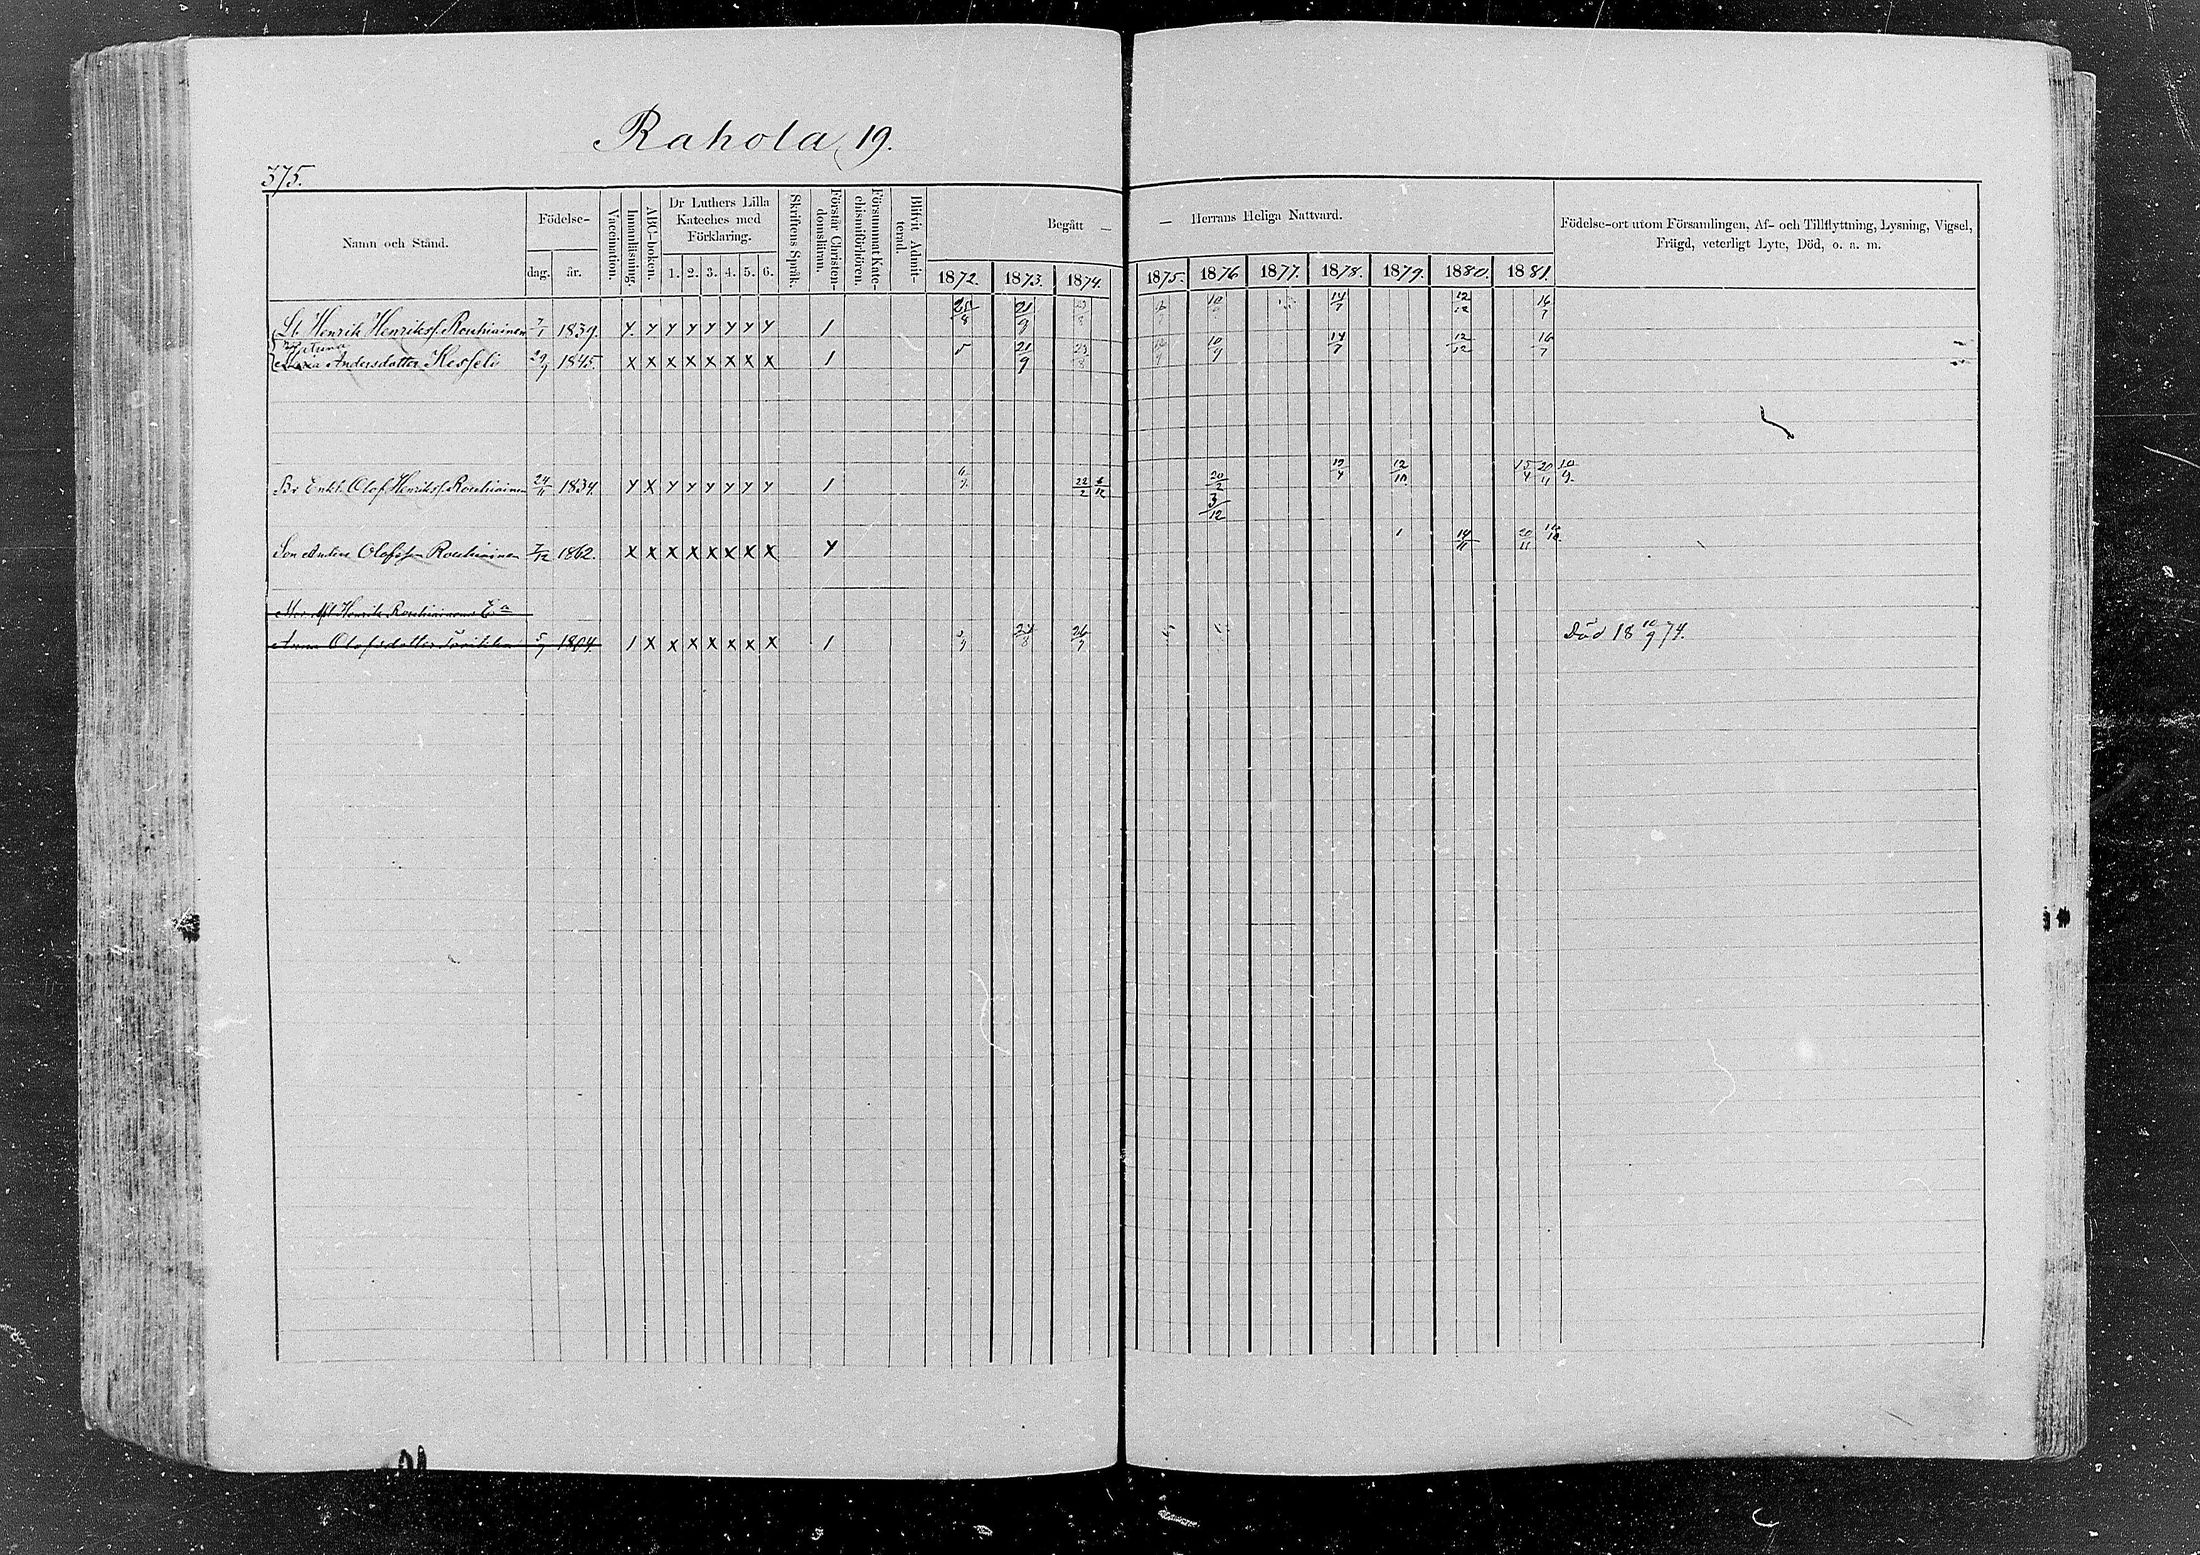 Rahola 19.
375.
Namn och Stånd. Födelse- dag. år. Vaccination. Innanläsning. ABC-boken. Dr Luthers Lilla Kateches med Förklaring. 1. 2. 3. 4. 5. 6. Skriftens Språk. Förstår Christendomsläran. Försummat Katechismiförhören. Blifvit Admitterad. Begått — 1872. 1873. 1874.
— Herrans Heliga Nattvard. 1875. 1876 1877. 1878. 1879. 1880. 1881. Födelse-ort utom Församlingen, Af- och Tillflyttning, Lysning, Vigsel, Frägd, veterligt Lyte, Död, o. a. m.
Henrik Henrikss. Rouhiainen 7/1 1839. Y Y Y Y Y Y Y Y 1 25/8 21/9 14/7 12/12 16/7
Andersdotter Kesseli 29/9 1845. X X X X X X X X 1 21/9 23/8 10/9 14/7 12/12 16/7
Br Enkl. Olof Henrikss. Rouhiainen 24/11 1834. Y X Y Y Y Y Y Y 1 22/2 6/12 20/2 3/12 12/10 15/4 20/11
Son Anders Olofsson Rouhiainen 7/12 1862. X X X X X X X X Y 1 14/11 20/11
Henrik Rouhiainens Ea
Anna Olofsdotter 5/9 1804. 1 X X X X X X X 1 26/7 Död 18 10/9 74.